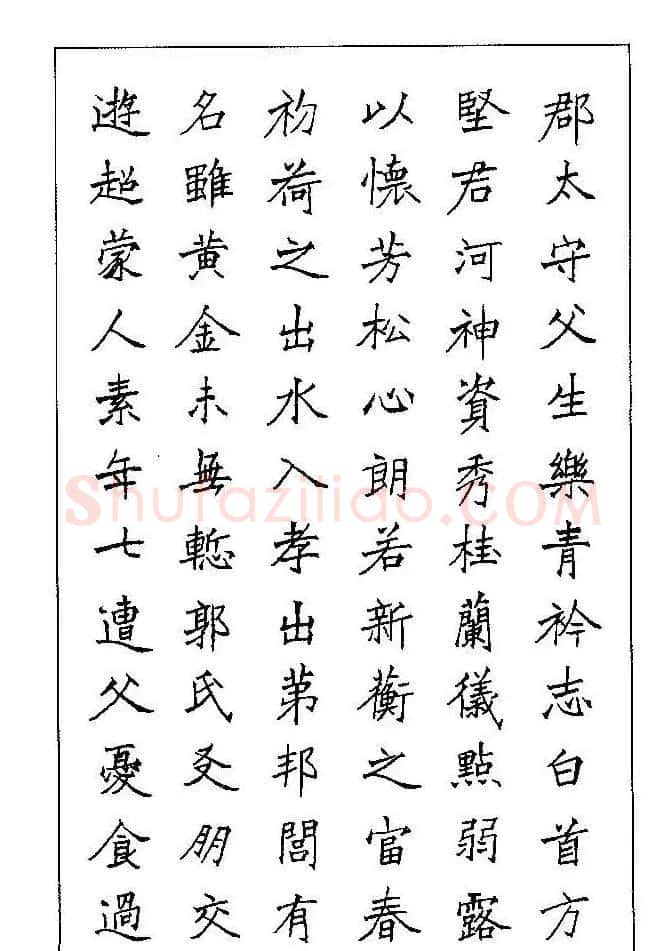 郡太守父生樂青衿志白首方
堅君河神資秀桂蘭儀點弱露
以懷芳松心朗若新蘅之當春
初荷之出水入孝出苐邦閭有
名雖黄金未無慙郭氏友朋交
遊超蒙人素年七遭父憂食過
Shufaziliao.COM